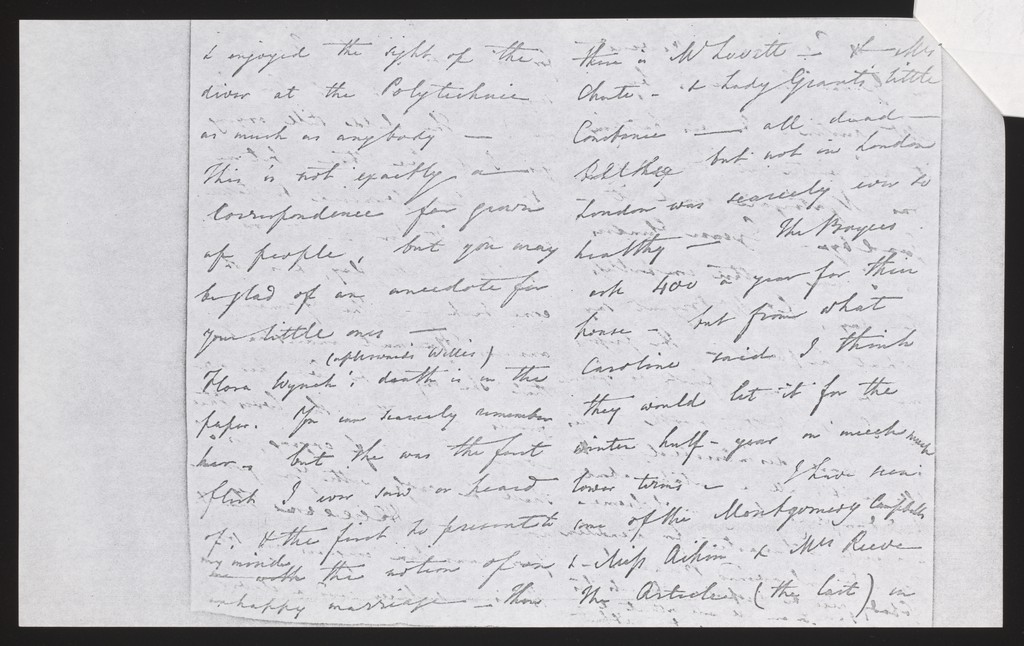 & enjoyed the sight of the
diver at the Polytechnic
as much as anybody —
This is not exactly a
Correspondence for grown
up people, but you may
be glad of an anecdote for
your little ones —
(afterwards Willis)
Flora Wynch's death is in the
paper. You can scarcely remember
her - but she was the first
flirt I ever saw or heard
of; & the first to present to
my mind
with the notion of an
unhappy marriage - Then
there is Mr Lovett — & Mrs
Chute - & Lady Grant's little
Constance — all dead —
but not in London
London was scarcely ever so
healthy — The
ask 400 a year for their
house - but from what
Caroline said I think
they would let it for the
winter half-year on much much
lower terms - I have seen
some of the Montgomery Campbells
& Miss Aikin & Mrs Reeve
The Article (the last) in